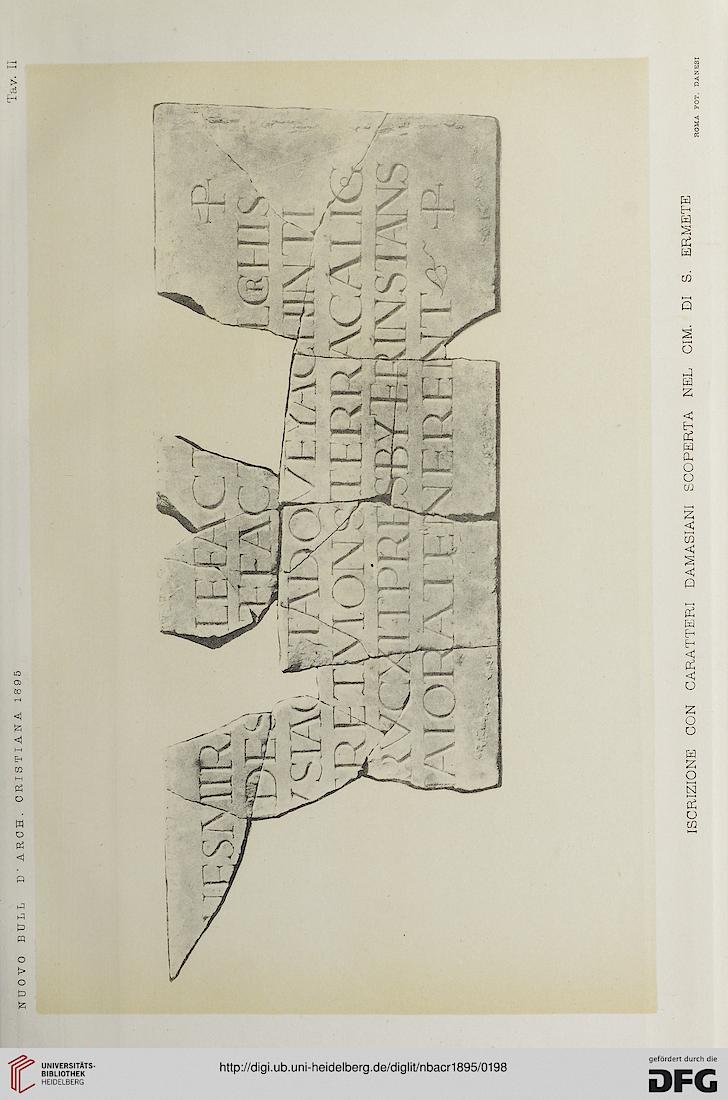 NUOVO BULL D'ARCH. CRISTIANA 1895
Tav. II
IESMIR LEFACT ☧
DES TFACT L®HIS
VSIAC TADOVEYAC HINTI
RETVIONSTERRACALIG
RVCXITPRESBYTERINSTANS
AIORATETNERENT ☧
ISCRIZIONE CON CARATTERI DAMASIANI SCOPERTA NEL CIM. DI S. ERMETE
ROMA FOT. DANESI
UNIVERSITÄTS-
BIBLIOTHEK
HEIDELBERG
http://digi.ub.uni-heidelberg.de/diglit/nbacr1895/0198
gefördert durch die
DFG